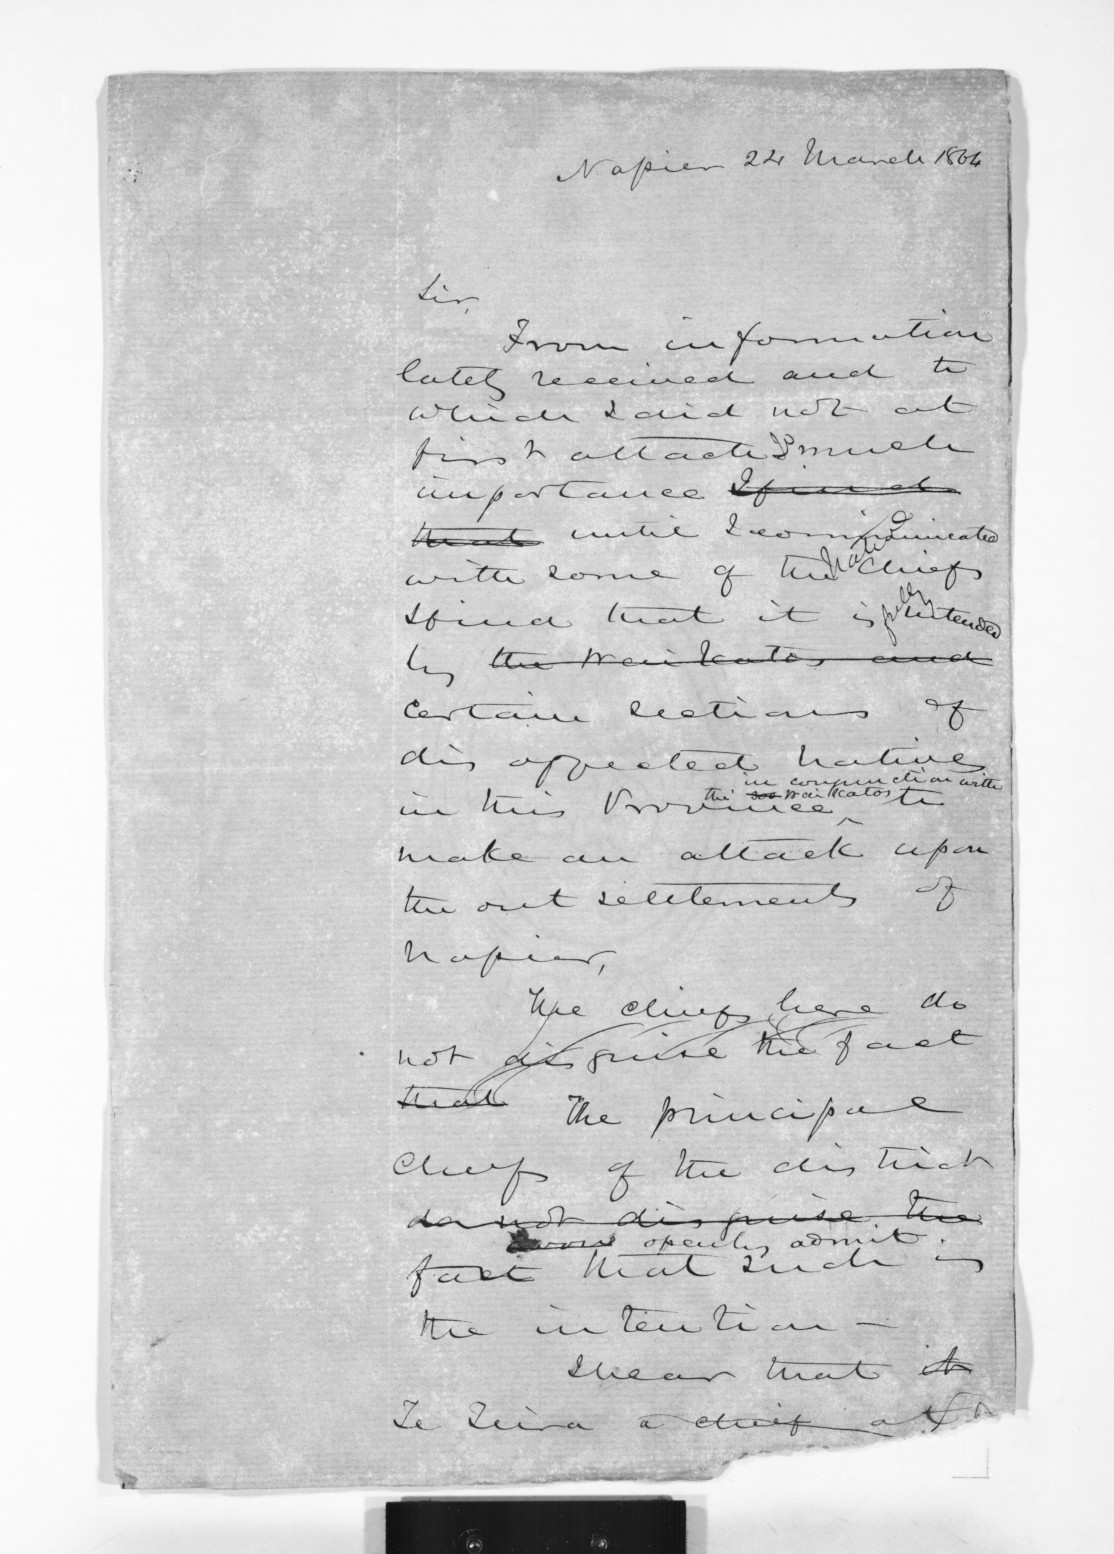 Napier 24 March 1864
Sir,
From information
lately received and to
which I did not at
first attach much
importance I find
that until I communicated
with some of the native chiefs
I find that it is fully intended
by the Waikatos and
certain sections of
disaffected natives
in conjunction with
the Waikatos
in this Province to
make an attack upon
the out settlements of
Napier,
The chiefs here do
not disguise the fact
that The principal
Chiefs of the district
do not disguise the
openly admit
fact that such is
the intention —
I hear that it
Te Teira a chief at